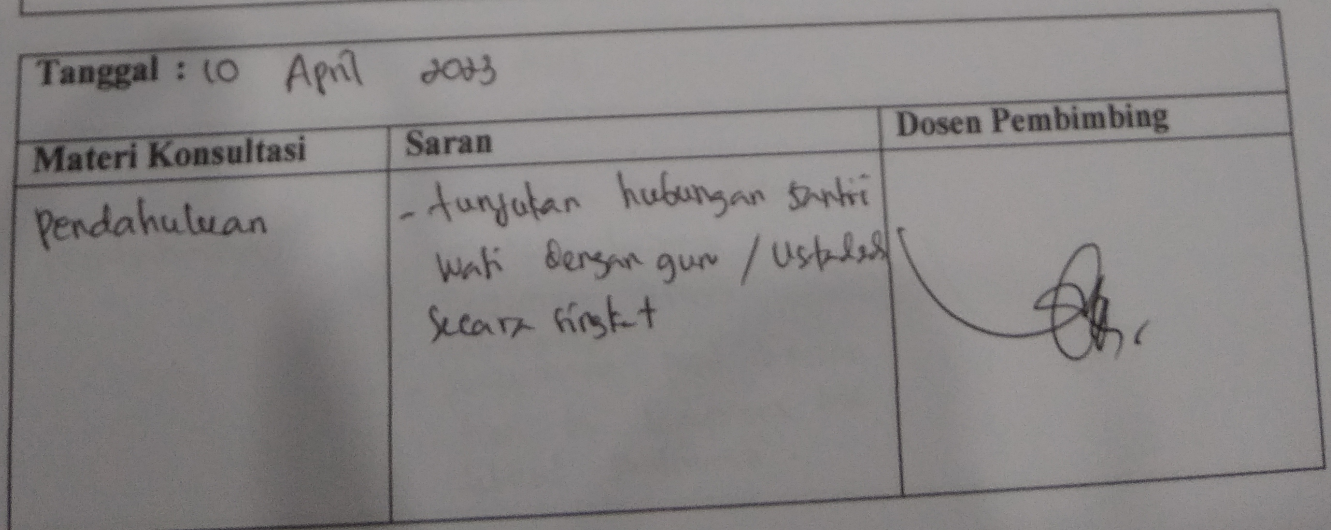 Tanggal : 10 April 2023
Materi Konsultasi
Saran
Dosen Pembimbing
Pendahuluan
- tunjukan hubungan santri
wati dengan guru / ustadzah
secara singkat